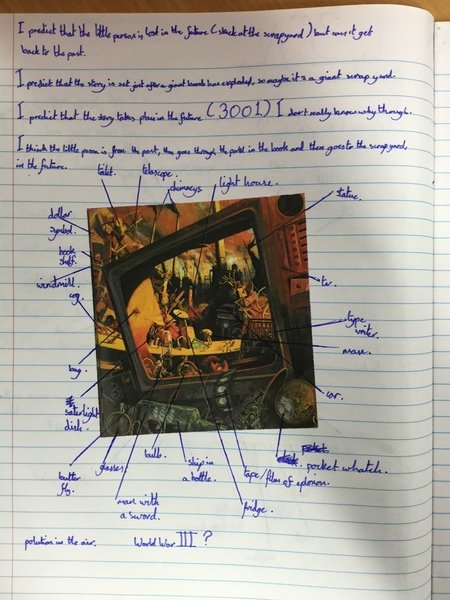 I predict that the little person is lost in the future (stuck at the scrapyard) but can't get
back to the past.
I predict that the story is set just after a giant bomb has exploded, so maybe it's a giant scrap yard.
I predict that the story takes place in the future (3001) I don't really know why though.
I think the little person is from the past, then goes through the portal in the book and then goes to the scrapyard,
in the future.
toilet.
telescope.
chimacys.
light house.
statue.
dollar
symbol.
book
shelf.
windmill.
cog
tv.
type
writer.
man.
bug
car.
saterlight
dish.
butter
fly.
glasses.
bulb.
man with
a sword.
ship in
a bottle.
tape/film of
fridge.
pocket whatch.
polution in the air.
World War III ?